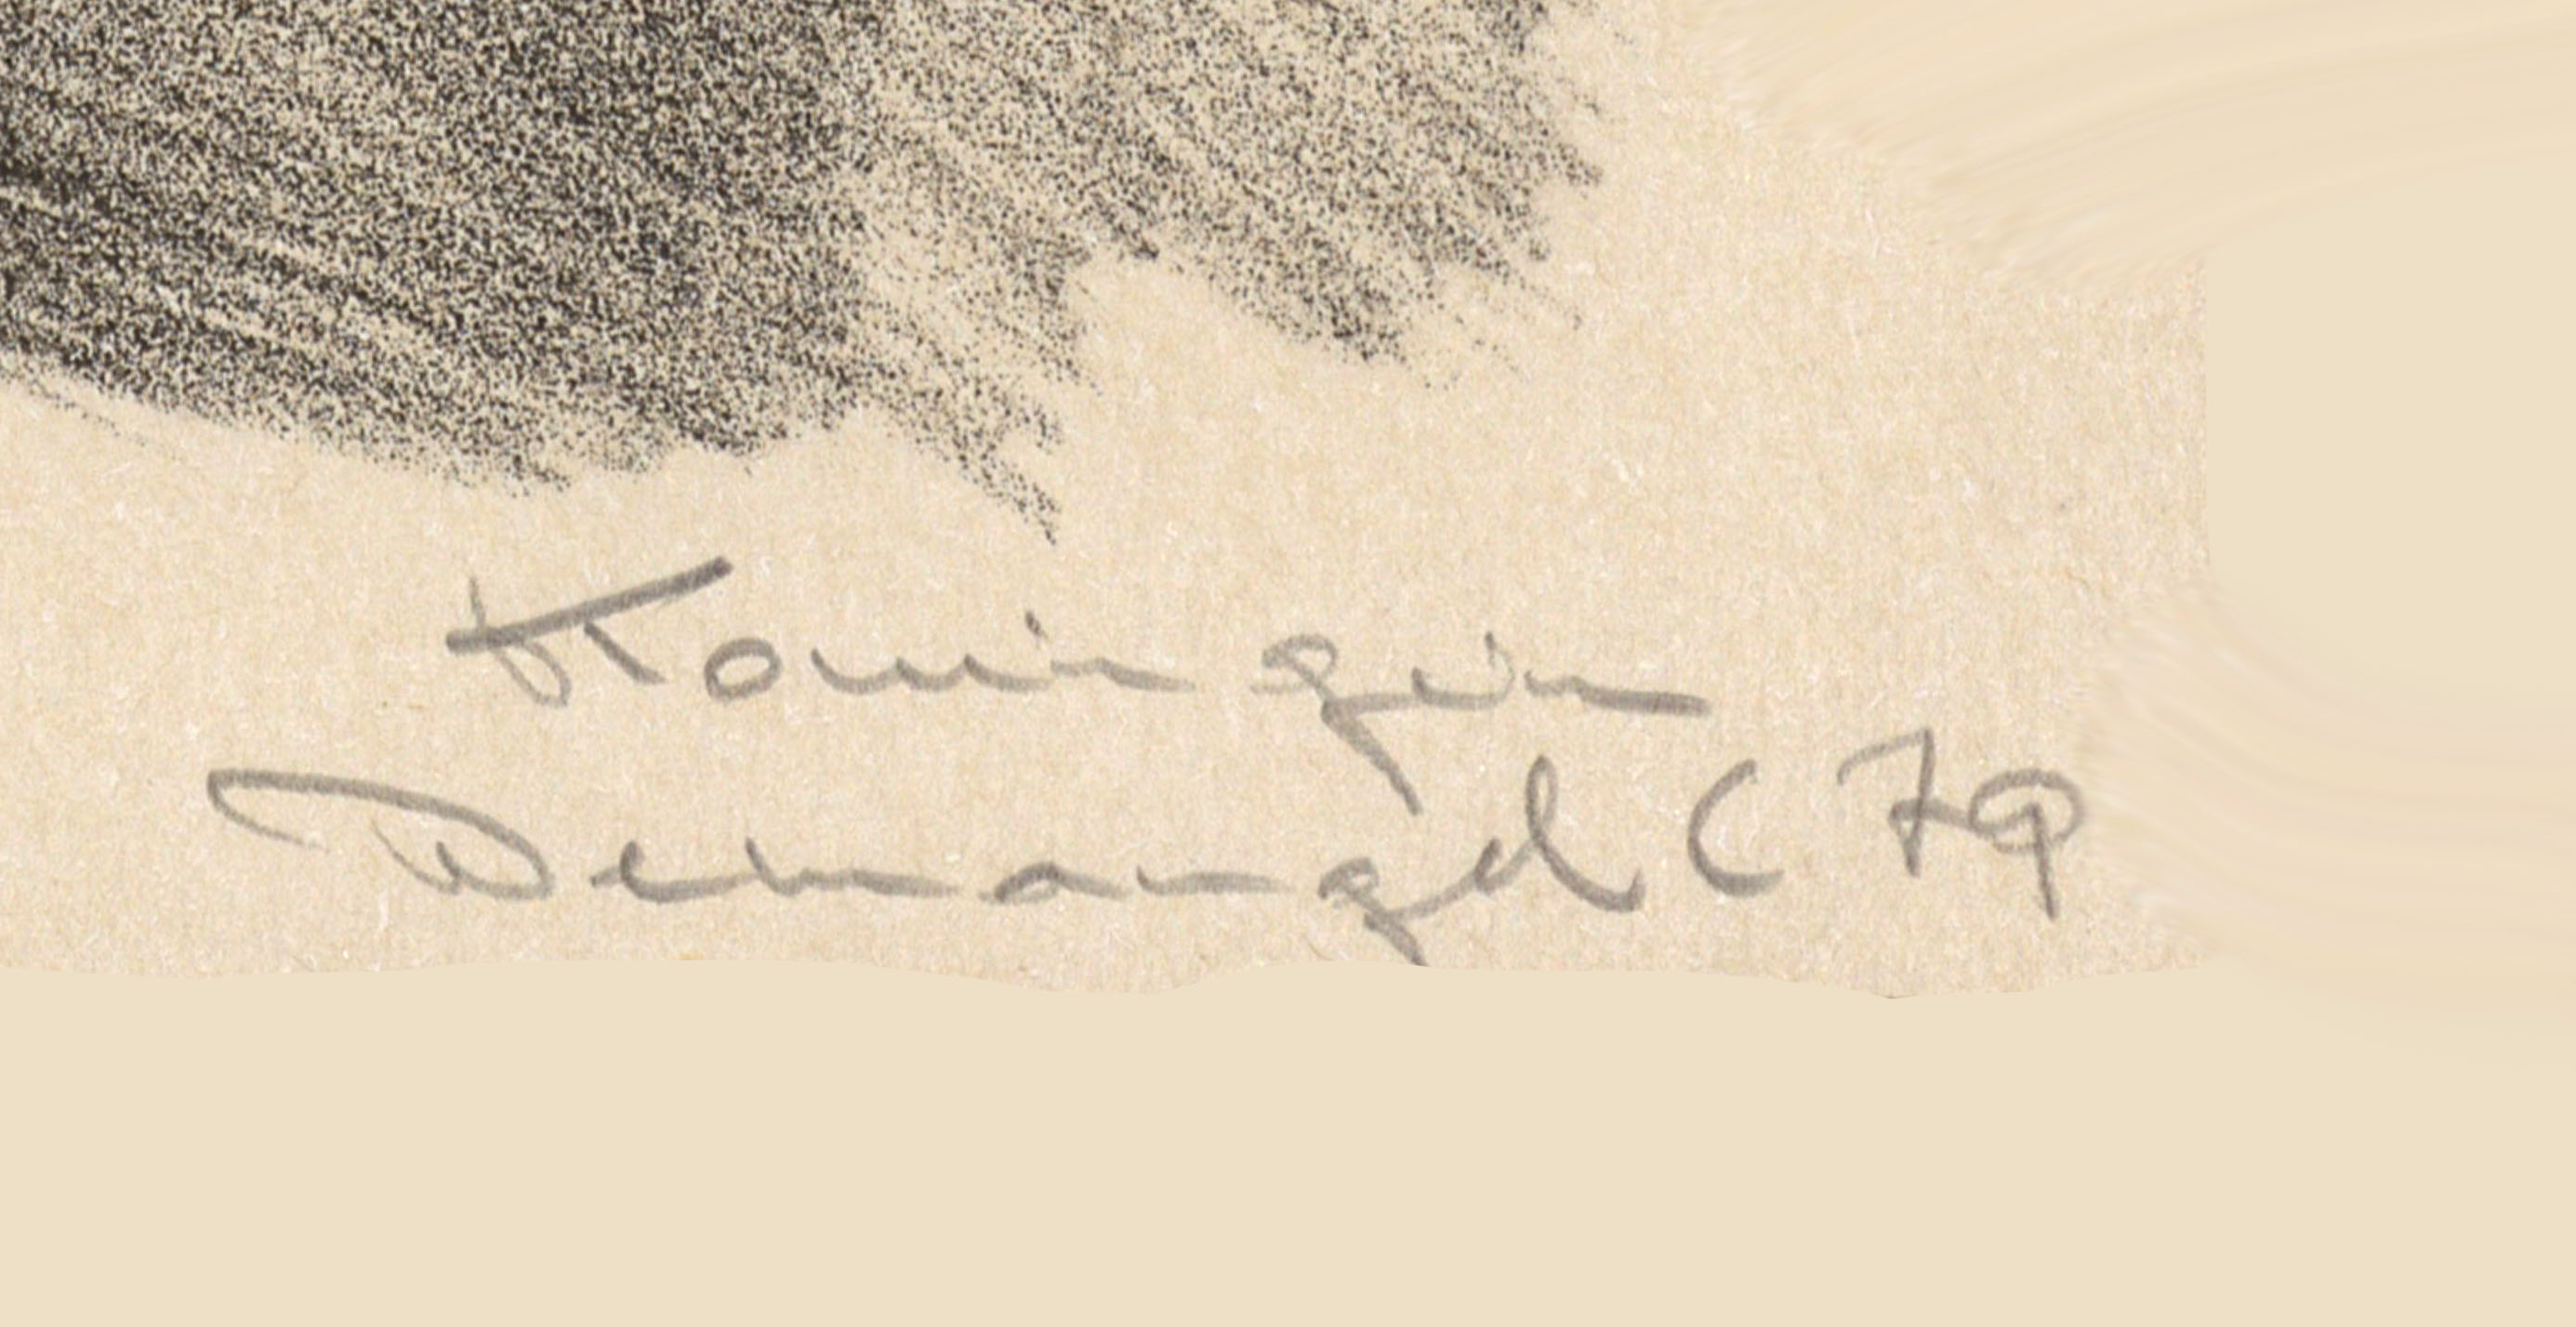 Koningin
Demangel C 79